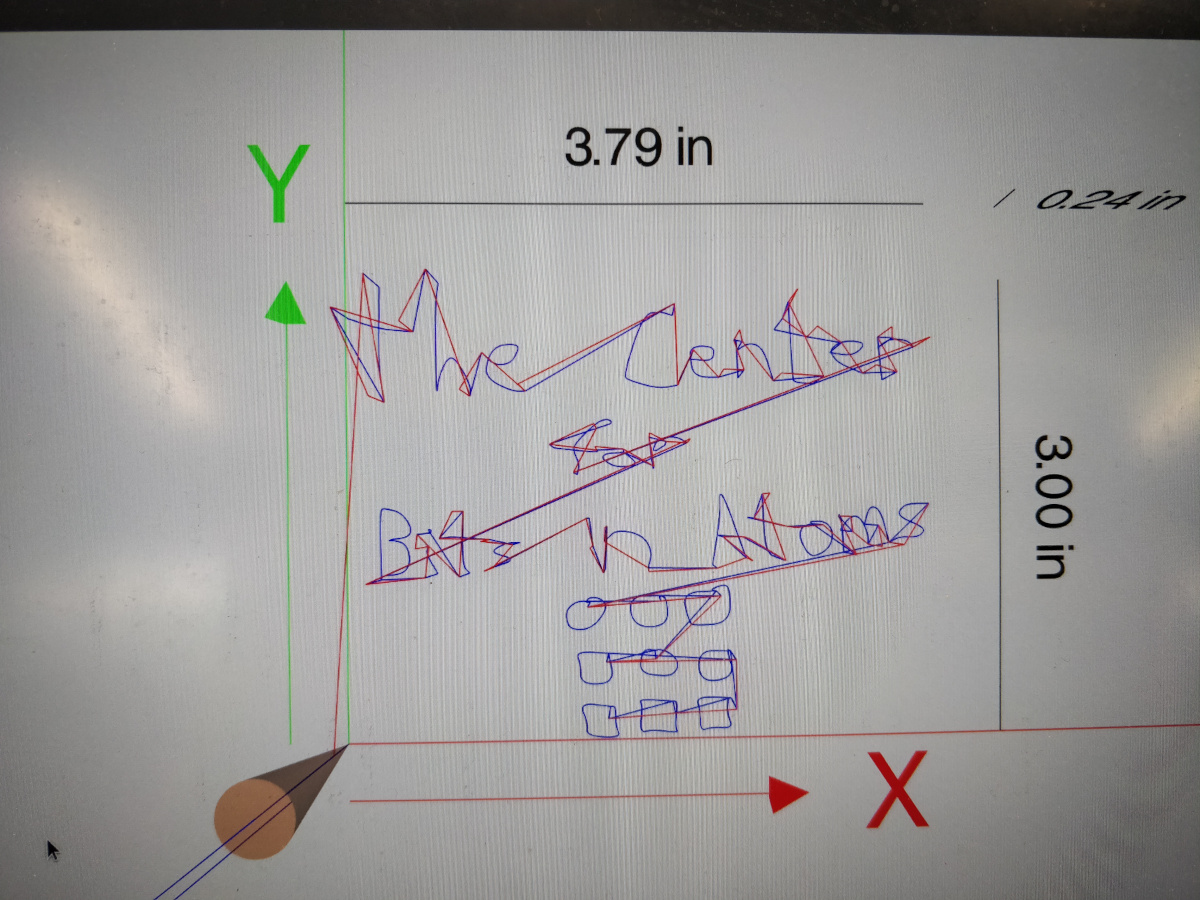 3.79 in
Y
0.24 in
The Center
for
Bits n Atoms
3.00 in
X